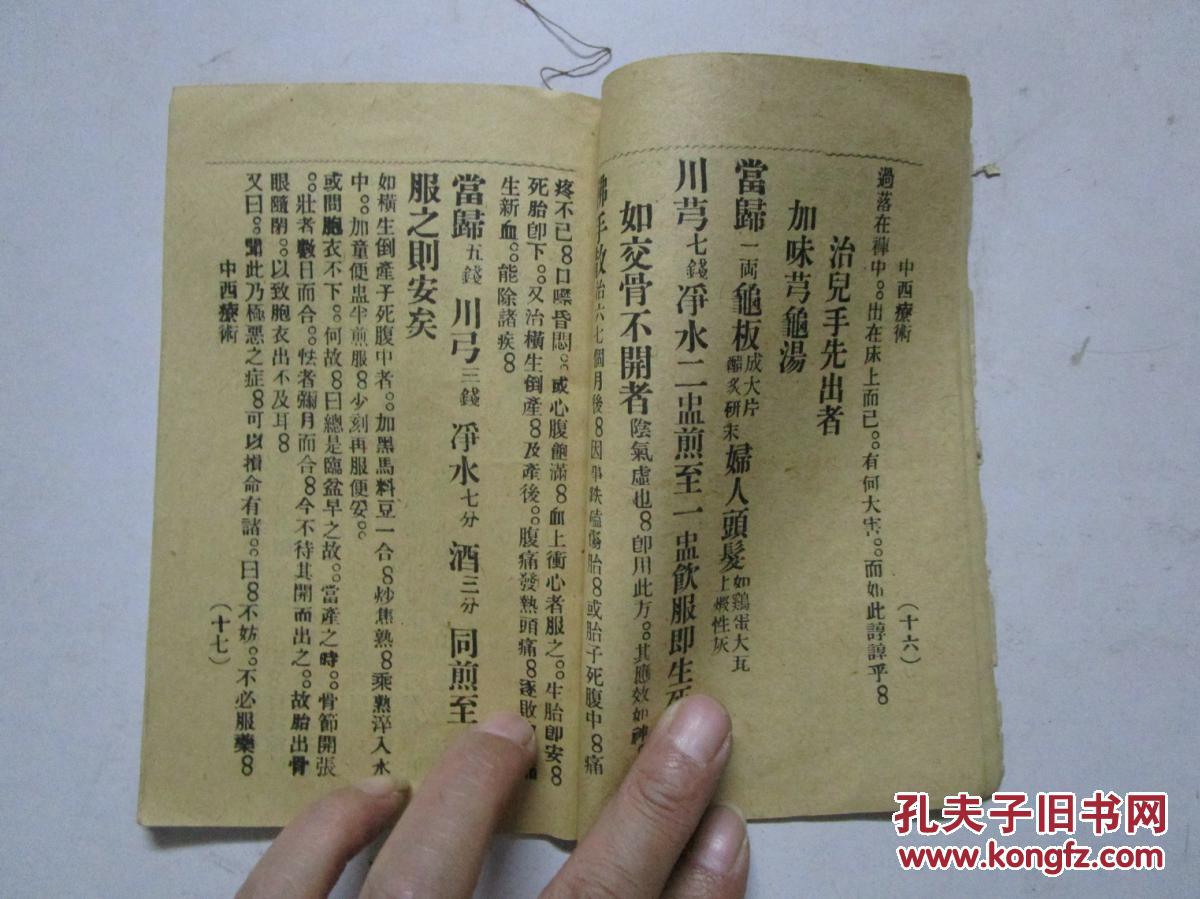 中西療術
（十六）
過落在褲中。。出在床上而已。。有何大害。。而如此諄諄乎8
治兒手先出者
加味芎龜湯
當歸一両龜板成大片醋炙研末婦人頭髮如鷄蛋大瓦上煅性灰
川芎七錢凈水二盅煎至一盅飲服即生
如交骨不開者陰氣虛也8卽用此方。。其應效如神
佛手散治六七個月後8因事跌磕傷胎8或胎子死腹中8痛
疼不已8口噤昏悶。。或心腹飽滿8血上衝心者服之。。生胎卽安8
死胎卽下。。又治橫生倒產8及產後。。腹痛發熱頭痛8逐敗
生新血。。能除諸疾8
當歸五錢 川弓三錢 凈水七分 酒三分 同煎至
服之則安矣
如橫生倒產子死腹中者。。加黑馬料豆一合8炒焦熟8乘熟淬入水
中。。加童便盅半煎服8少刻再服便妥。。
或問胞衣不下。。何故8曰總是臨盆早之故。。當產之時。。骨節開張
。。壯者數日而合。。怯者彌月而合8今不待其開而出之。。故胎出骨
眼隨閉。。以致胞衣出不及耳8
又曰。。聞此乃極惡之症8可以損命有諸。。曰8不妨。。不必服藥8
中西療術
（十七）
孔夫子旧书网
www.kongfz.com